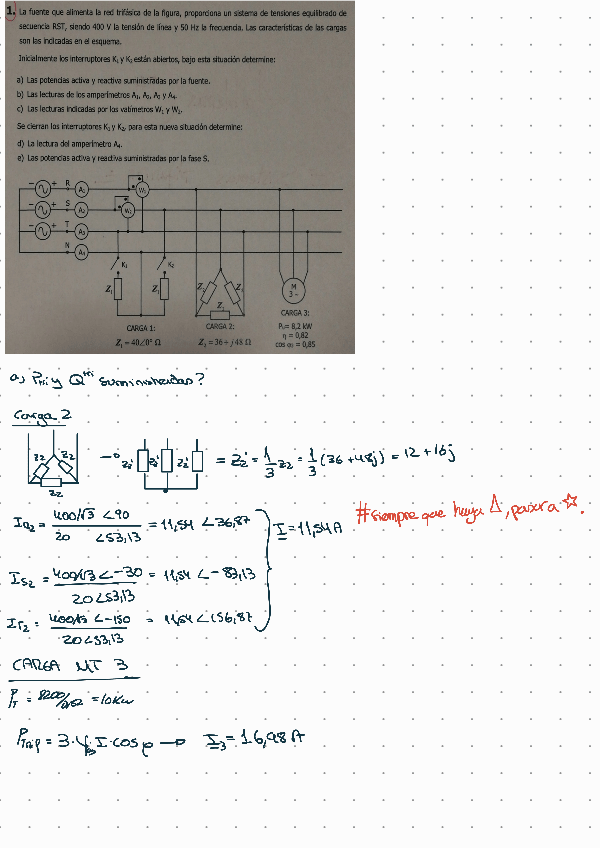 1. La fuente que alimenta la red trifásica de la figura, proporciona un sistema de tensiones equilibrado de
secuencia RST, siendo 400 V la tensión de línea y 50 Hz la frecuencia. Las características de las cargas
son las indicadas en el esquema.
Inicialmente los interruptores K₁ y K₂ están abiertos, bajo esta situación determine:
a) Las potencias activa y reactiva suministradas por la fuente.
b) Las lecturas de los amperímetros A₁, A₂, A₃ y A₄.
c) Las lecturas indicadas por los vatímetros W₁ y W₂.
Se cierran los interruptores K₁ y K₂, para esta nueva situación determine:
d) La lectura del amperímetro A₄.
e) Las potencias activa y reactiva suministradas por la fase S.
− + R A₁ W₁
− + S A₂ W₂
− + T A₃
N A₄
K₁ K₂
Z₁ Z₁ Z₂ Z₂ Z₂ M 3~
CARGA 1: CARGA 2: CARGA 3:
Z₁ = 40∠0° Ω Z₂ = 36 + j48 Ω Pᵤ= 8,2 kW
η = 0,82
cos φ = 0,85
a) Ptri y Qtri suministradas?
Carga 2
Z2 Z2 Z2 → Z2' Z2' Z2' = Z2' = 1/3 Z2 = 1/3 (36 + 48j) = 12 + 16j
# siempre que haya Δ, pasar a ☆.
IR2 = 400/√3 ∠90 / 20 ∠53,13 = 11,54 ∠36,87
I = 11,54 A
IS2 = 400/√3 ∠-30 / 20∠53,13 = 11,54 ∠-83,13
IT2 = 400/√3 ∠-150 / 20∠53,13 = 11,54 ∠156,87
CARGA MT 3
PT = 8200/0,82 = 10Kw
PTrif = 3·Vf·I·cosφ → I3 = 16,98 A